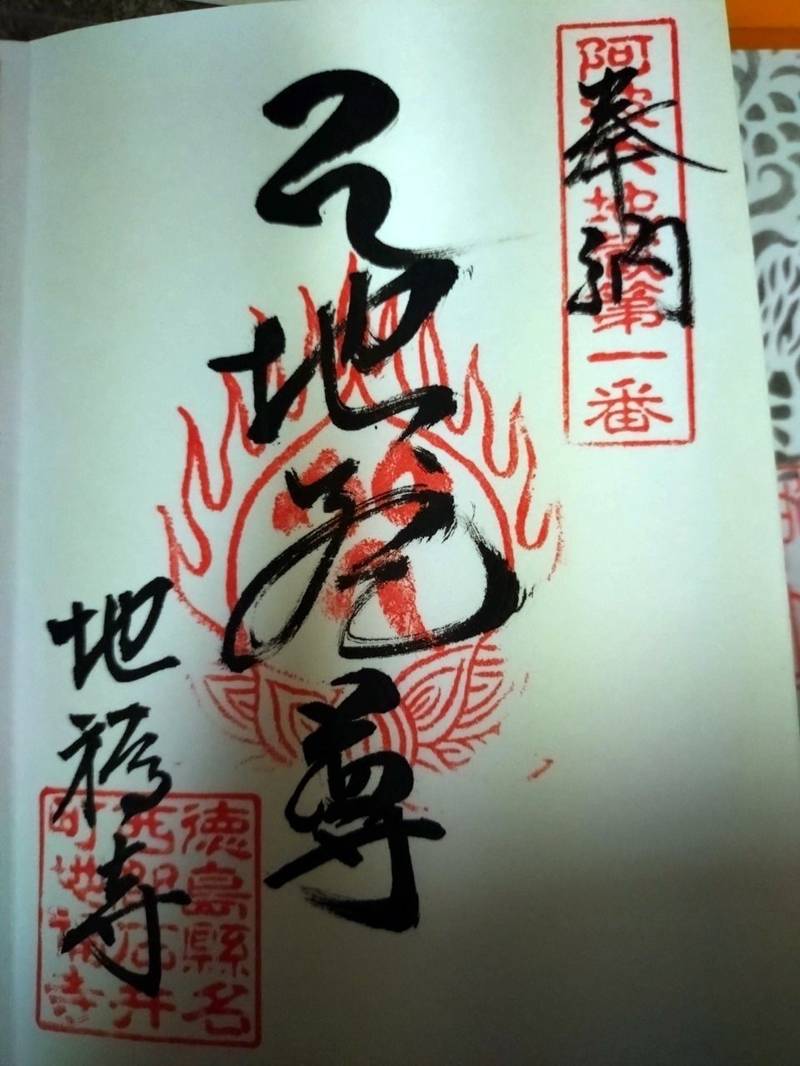 阿波六地蔵第一番
奉納
六地蔵尊
地福寺
徳島縣名
西郡石井
町地福寺